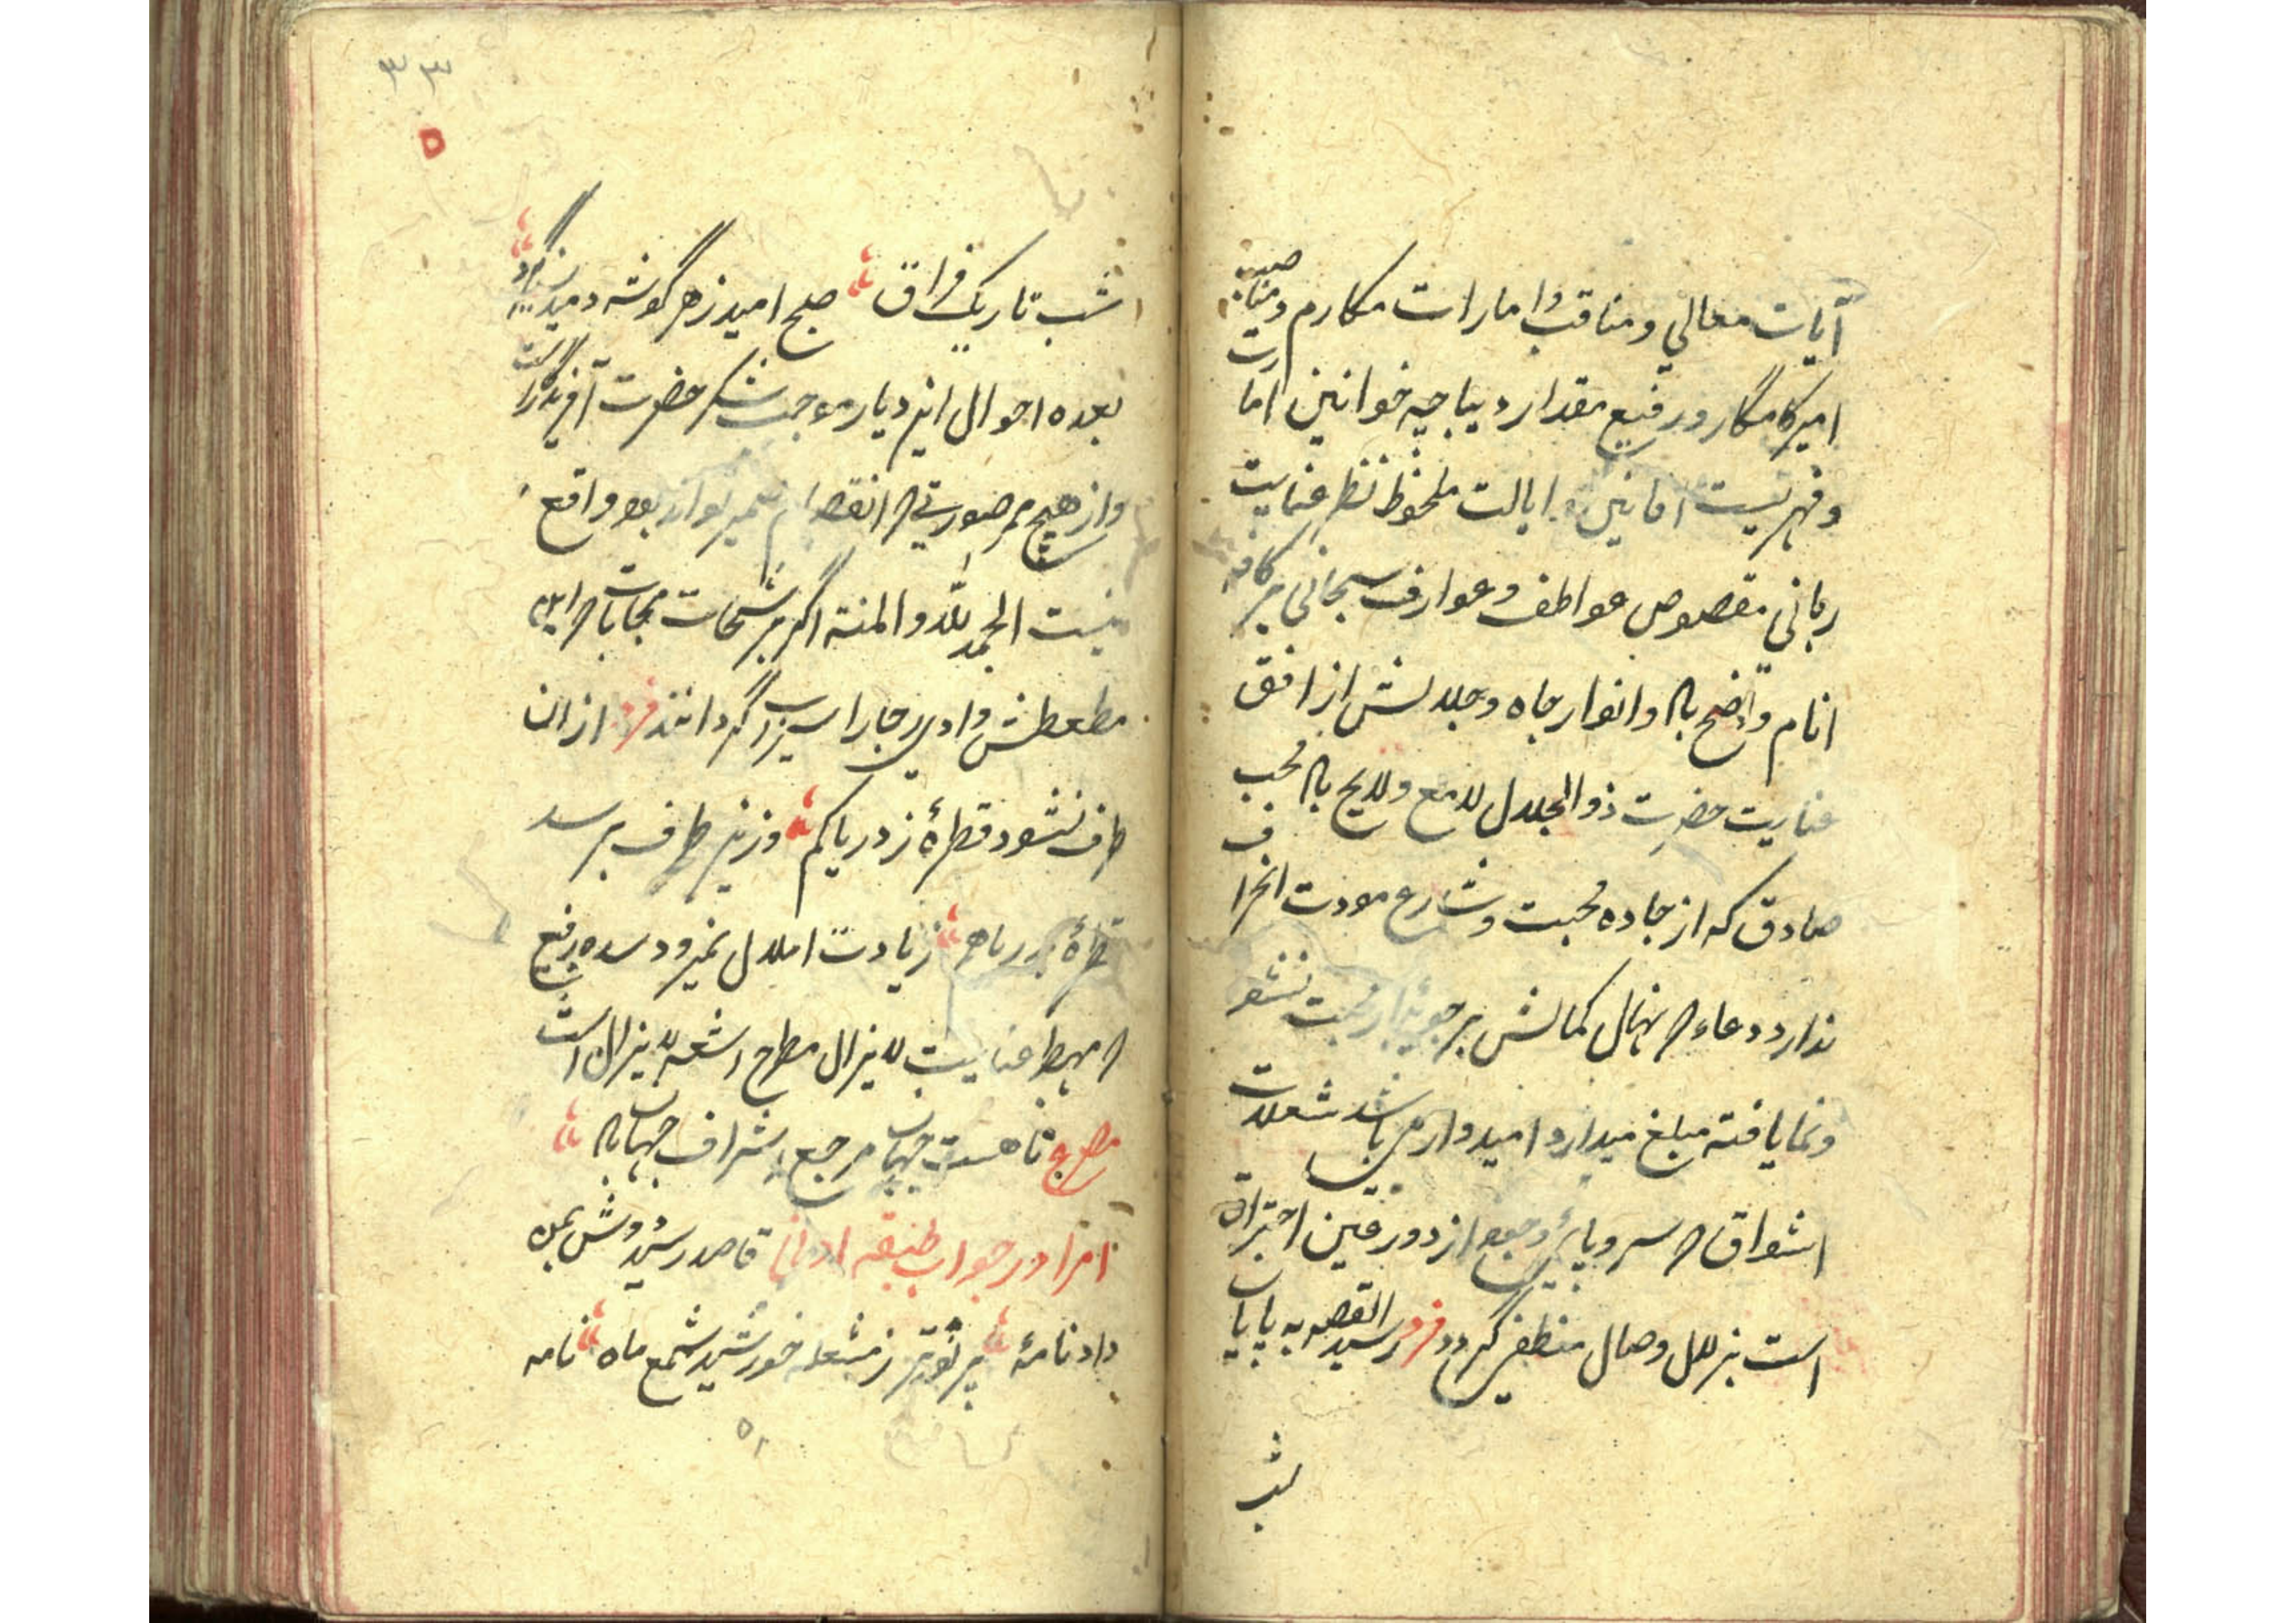 آیات معالي و مناقب و امارات مکارم و مناصب
امیر کامکار و رفیع مقدار دیباجیه خوانین امارت
و فهرست ایالت ملحوظ نظر عنایت
ربانی مقصوص عواطف و عوارف سبحانی بر کافه
انام واضح باد و انوار جاه و جلالش از افق
عنایت حضرت ذوالجلال لامع و لایح باد محب
صادق که از جاده محبت و شارع مودت انحراف
ندارد دعاء که نهال کمالش بر جویبار محبت نشو
و نما یافته مبلغ میدارد امیدوار می باشد شعلات
اشواق که سر و پای وجود از دور قین احتراق
است بزلال وصال منطفی کردد فرد رسید القصه به پایان
شب
۳۳
۵
شب تاریک فراق صبح امید ز هر گوشه دمیدن گیرد
بعده احوال این دیار موجب شکر حضرت آفریدگار است
و از هیچ ممر صورتی که انقصام ضمیر تواند بود واقع
نیست الحمد لله و المنة اگر بر شحات سحابات که این
مطعطش وادی هجار را سیراب گردانند فرد از ان
طرف نشود قطرۀ ز دریا کم وزین طرف برسد
قطرۀ بدریا هم زیادت املال نمیرود سده رفیع
که مهبط عنایت لا یزال مطرح اشعه لا یزال است
مصرع تا هست جهان مرجع اشراف جهان باد
امرا در جواب طبقه ادوانی قاصد رسید دوش بمن
داد نامۀ پر نورتر ز مشعله خورشید شمع ماه نامه
۵۱